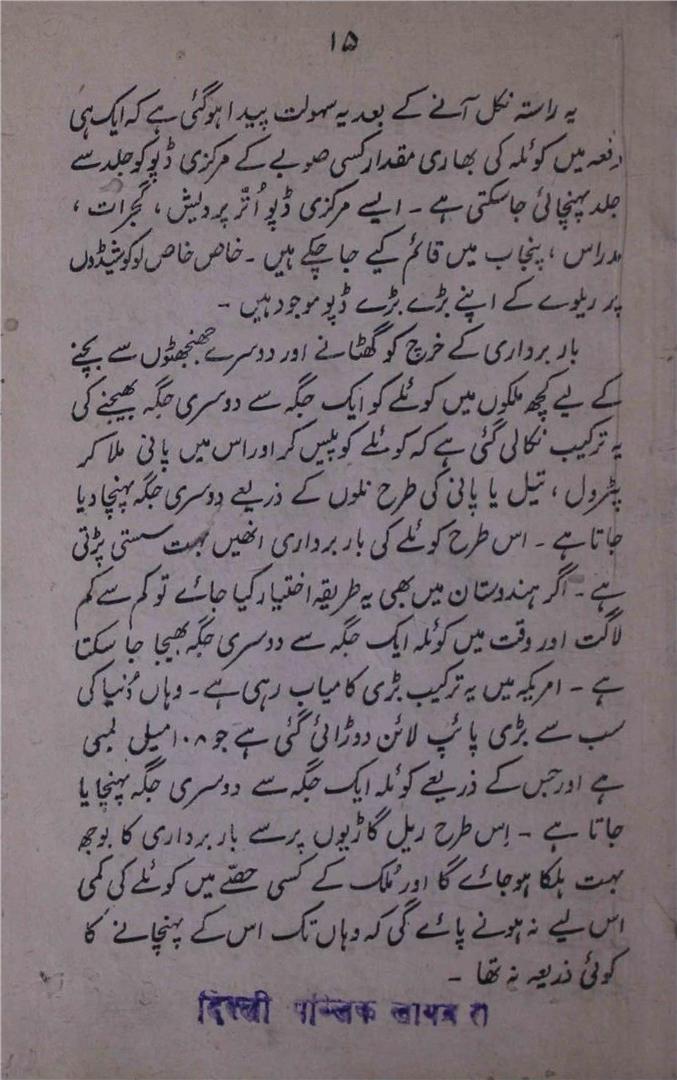 ۱۵
یہ راستہ نکل آنے کے بعد یہ سہولت پیدا ہوگئی ہے کہ ایک ہی
دفعہ میں کوئلہ کی بھاری مقدار کسی صوبے کے مرکزی ڈپو کو جلد سے
جلد پہنچائی جاسکتی ہے ۔ ایسے مرکزی ڈپو اُتّر پردیش ، گجرات ،
مدراس ، پنجاب میں قائم کیے جاچکے ہیں ۔ خاص خاص لوکوشیڈوں
پر ریلوے کے اپنے بڑے بڑے ڈپو موجود ہیں ۔
بار برداری کے خرچ کو گھٹانے اور دوسرے جھنجھٹوں سے بچنے
کے لیے کچھ ملکوں میں کوئلے کو ایک جگہ سے دوسری جگہ بھیجنے کی
یہ ترکیب نکالی گئی ہے کہ کوئلے کو پیس کر اور اس میں پانی ملا کر
پٹرول ، تیل یا پانی کی طرح نلوں کے ذریعے دوسری جگہ پہنچا دیا
جاتا ہے ۔ اس طرح کوئلے کی بار برداری انھیں بہت سستی پڑتی
ہے ۔ اگر ہندوستان میں بھی یہ طریقہ اختیار کیا جائے تو کم سے کم
لاگت اور وقت میں کوئلہ ایک جگہ سے دوسری جگہ بھیجا جا سکتا
ہے ۔ امریکہ میں یہ ترکیب بڑی کامیاب رہی ہے ۔ وہاں دُنیا کی
سب سے بڑی پائپ لائن دوڑائی گئی ہے جو ۱۰۸ میل لمبی
ہے اور جس کے ذریعے کوئلہ ایک جگہ سے دوسری جگہ پہنچایا
جاتا ہے ۔ اِس طرح ریل گاڑیوں پر سے بار برداری کا بوجھ
بہت ہلکا ہوجائے گا اور مُلک کے کسی حصّے میں کوئلے کی کمی
اس لیے نہ ہونے پائے گی کہ وہاں تک اس کے پہنچانے کا
کوئی ذریعہ نہ تھا ۔
दिल्ली पब्लिक लायब्रेरी